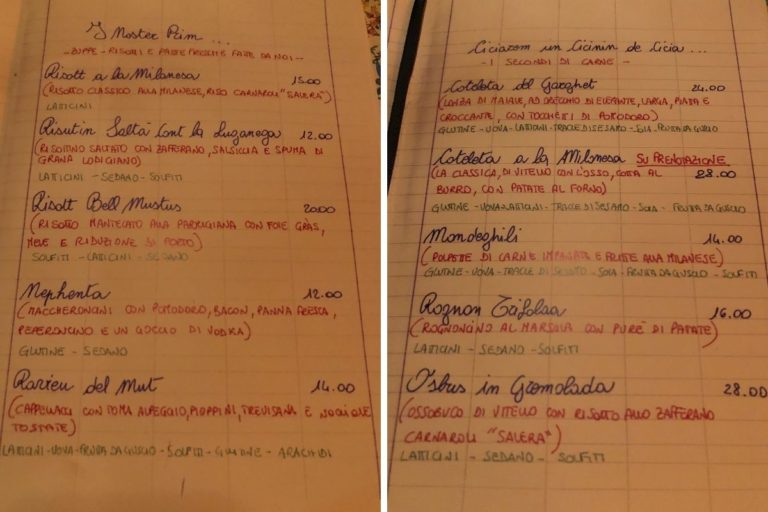 I Noster Prim ...
- ZUPPE - RISOTTI E PASTE FRESCHE FATTE DA NOI -
Risott a la Milanesa 15.00
(RISOTTO CLASSICO ALLA MILANESE, RISO CARNAROLI "SALERA")
LATTICINI
Risutin Saltà Cont la Luganega 12.00
(RISOTTINO SALTATO CON ZAFFERANO, SALSICCIA E SPUMA DI
GRANA LODIGIANO)
LATTICINI - SEDANO - SOLFITI
Risott Bell Mustus 20.00
(RISOTTO MANTECATO ALLA PARMIGIANA CON FOIE GRAS,
MELE E RIDUZIONE DI PORTO)
SOLFITI - LATTICINI - SEDANO
Nephenta 12.00
(MACCHERONCINI CON POMODORO, BACON, PANNA FRESCA,
PEPERONCINO E UN GOCCIO DI VODKA)
GLUTINE - SEDANO
Ravieu del Mut 14.00
(CAPPELLACCI CON TOMA ALPEGGIO, PIOPPINI, TREVISANA E NOCCIOLE
TOSTATE)
LATTICINI - UOVA - FRUTTA DA GUSCIO - SOLFITI - GLUTINE - ARACHIDI
Ciciarom un Cicinin de Cicia ...
- I SECONDI DI CARNE -
Coteleta del Garghet 24.00
(LONZA DI MAIALE, AD ORECCHIO DI ELEFANTE, LARGA, PIATTA E
CROCCANTE, CON TOCCHETTI DI POMODORO)
GLUTINE - UOVA - LATTICINI - TRACCE DI SESAMO - SOIA - FRUTTA DA GUSCIO
Coteleta a la Milanesa SU PRENOTAZIONE
(LA CLASSICA, DI VITELLO CON L'OSSO, COTTA AL 28.00
BURRO, CON PATATE AL FORNO)
GLUTINE - UOVA - LATTICINI - TRACCE DI SESAMO - SOIA - FRUTTA DA GUSCIO
Mondeghili 14.00
(POLPETTE DI CARNE IMPANATE E FRITTE ALLA MILANESE)
GLUTINE - UOVA - TRACCE DI SESAMO - SOIA - FRUTTA DA GUSCIO - SOLFITI
Rognon Trifolaa 16.00
(ROGNONCINO AL MARSALA CON PURÈ DI PATATE)
LATTICINI - SEDANO - SOLFITI
Osbus in Gremolada 28.00
(OSSOBUCO DI VITELLO CON RISOTTO ALLO ZAFFERANO
CARNAROLI "SALERA")
LATTICINI - SEDANO - SOLFITI